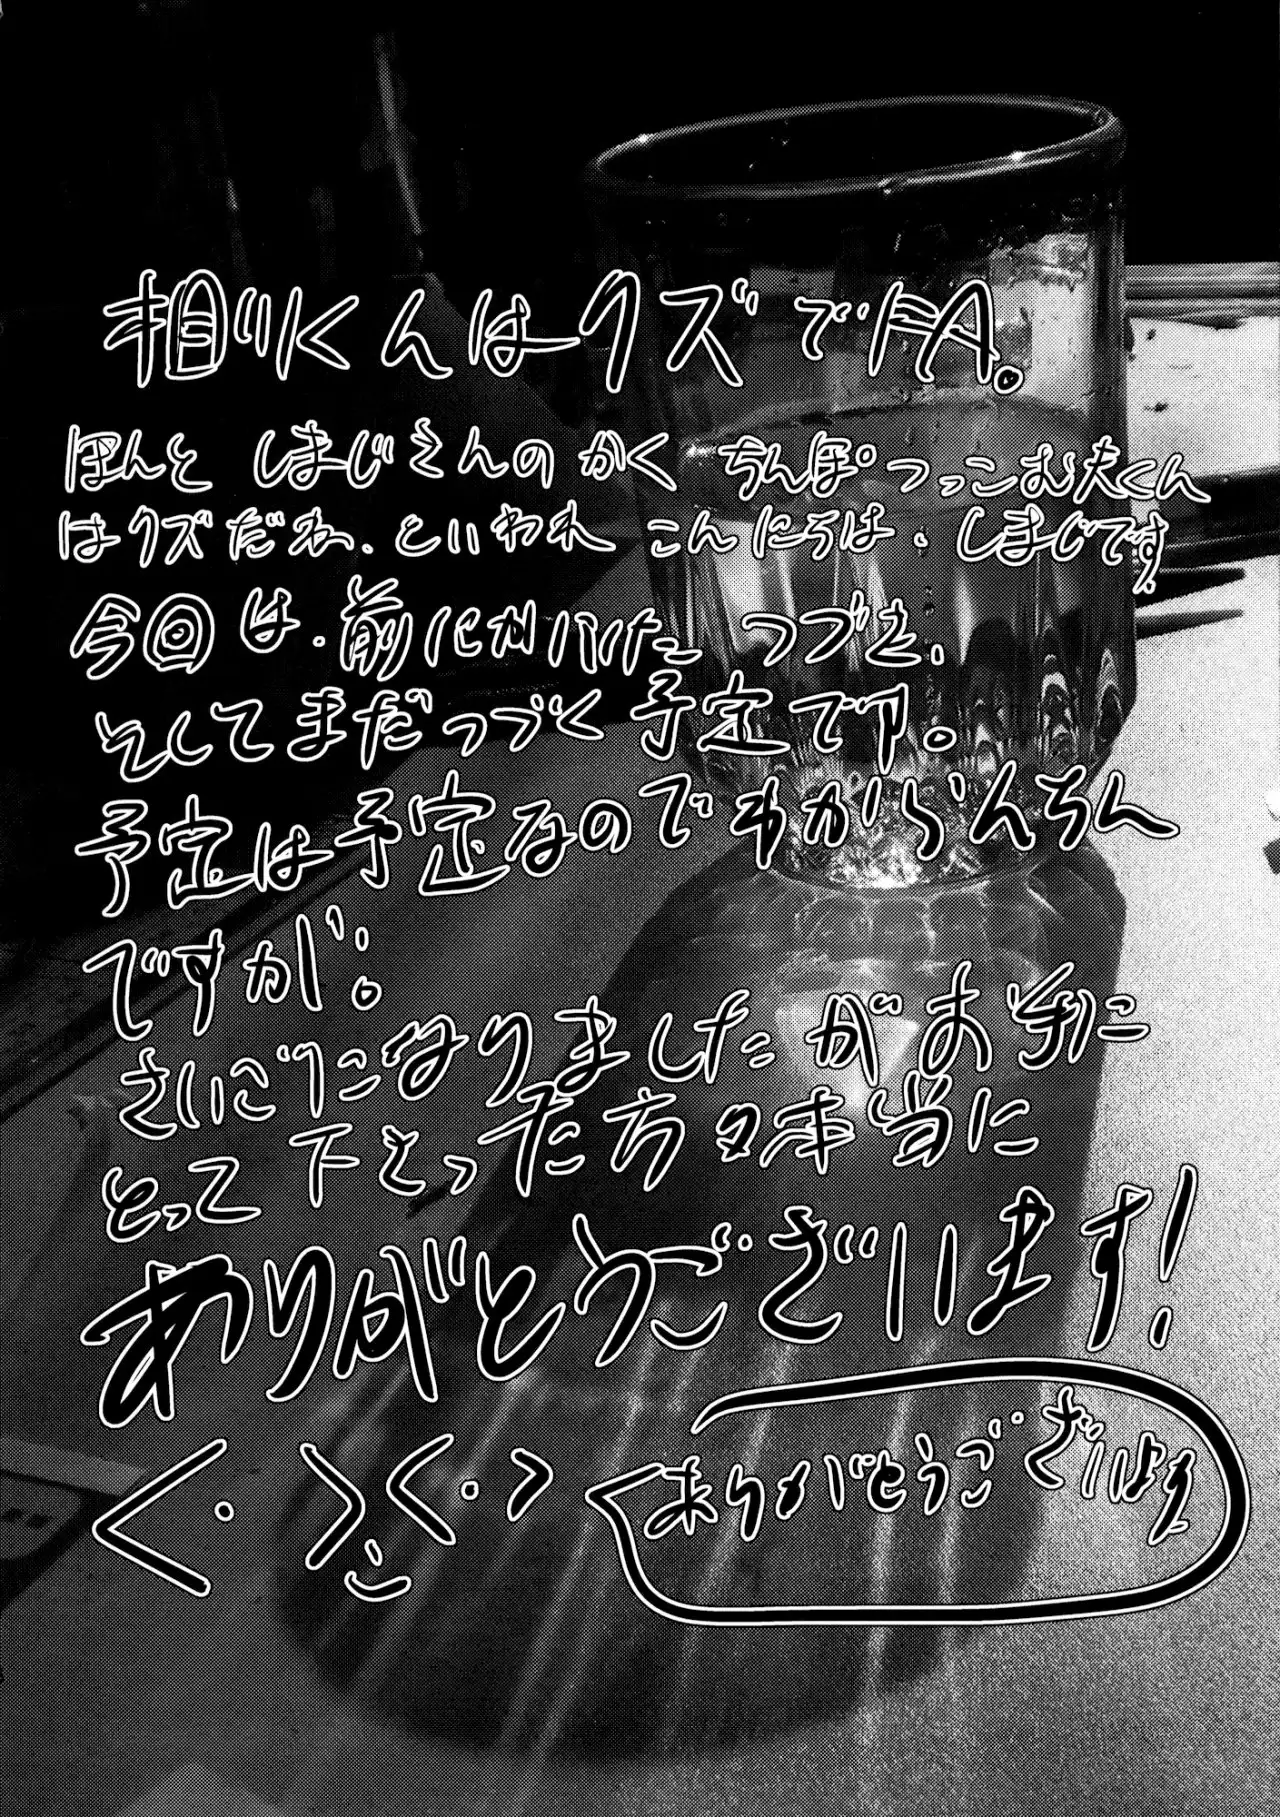 相川くんはクズでFA。
ほんと しまじさんのかく ちんぽつっこむ夫くん
はクズだね、といわれ こんにちは、しまじです
今回は、前にかいたつづき、
そしてまだつづく予定です。
予定は予定なのでわからんちん
ですが!
さいごになりましたがお手に
とって下さった方々本当に
ありがとうございます!
ありがとうございます